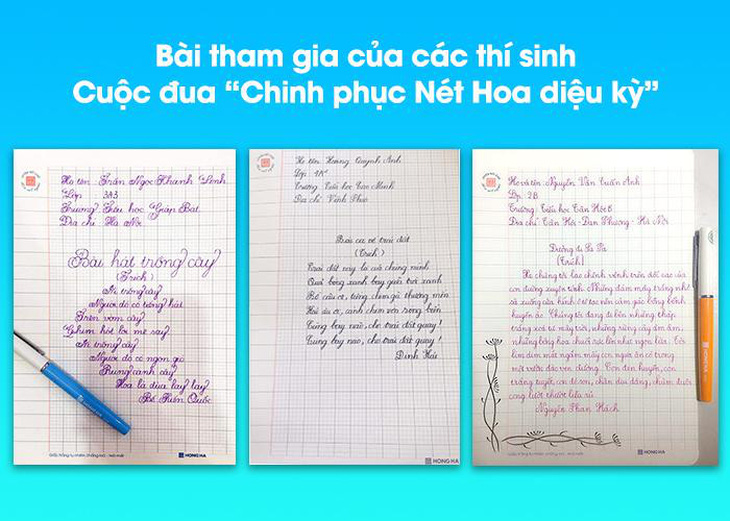 Bài tham gia của các thí sinh
Cuộc đua “Chinh phục Nét Hoa diệu kỳ”
Họ tên: Trần Ngọc Khánh Linh
Lớp 3A3
Trường: Tiểu học Giáp Bát
Địa chỉ: Hà Nội
Bài hát trồng cây
(Trích)
Ai trồng cây
Người đó có tiếng hát
Trên vòm cây
Chim hót lời mê say
Ai trồng cây
Người đó có ngọn gió
Rung cành cây
Hoa lá đùa lay lay
Bế Kiến Quốc
HONG HA
Họ tên: Hoàng Quỳnh Anh
Lớp: 4A
Trường: Tiểu học
Địa chỉ: Vĩnh Phúc
Bài ca về trái đất
(Trích)
Trái đất này là của chúng mình
Quả bóng xanh bay giữa trời xanh
Bồ câu ơi, tiếng chim gù thương mến
Hải âu ơi, cánh chim vờn sóng biển
Cùng bay nào, cho trái đất quay!
Cùng bay nào, cho trái đất quay!
Định Hải
HONG HA
Họ và tên: Nguyễn Văn Tuấn Anh
Lớp: 2B
Trường: Tiểu học Tân Hội B
Địa chỉ: Tân Hội - Đan Phượng - Hà Nội
Đường đi Sa Pa
(Trích)
Xe chúng tôi lao chênh vênh trên dốc cao của
con đường xuyên tỉnh. Những đám mây trắng nhỏ
sà xuống cửa kính ô tô tạo nên cảm giác bồng bềnh
huyền ảo. Chúng tôi đang đi bên những thác
trắng xóa tựa mây trời, những rừng cây âm âm,
những bông hoa chuối rực lên như ngọn lửa. Tôi
lim dim mắt ngắm mấy con ngựa ăn cỏ trong
một vườn đào ven đường. Con đen huyền, con
trắng tuyết, con đỏ son, chân dịu dàng, chùm đuôi
cong lướt thướt liễu rủ.
Nguyễn Phan Hách
HONG HA